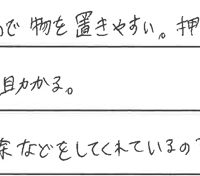 で物を置きやすい。押
助かる。
などをしてくれているの